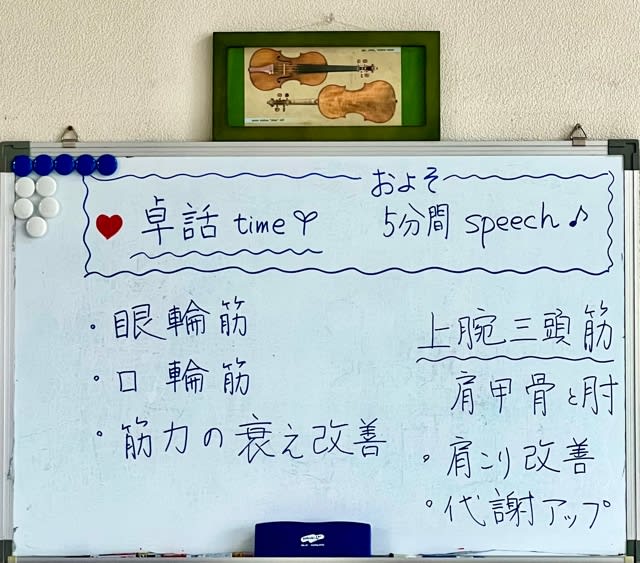 およそ
卓話 time
5分間 speech♪
・眼輪筋
・口輪筋
・筋力の衰え改善
上腕三頭筋
肩甲骨と肘
・肩こり改善
・代謝アップ